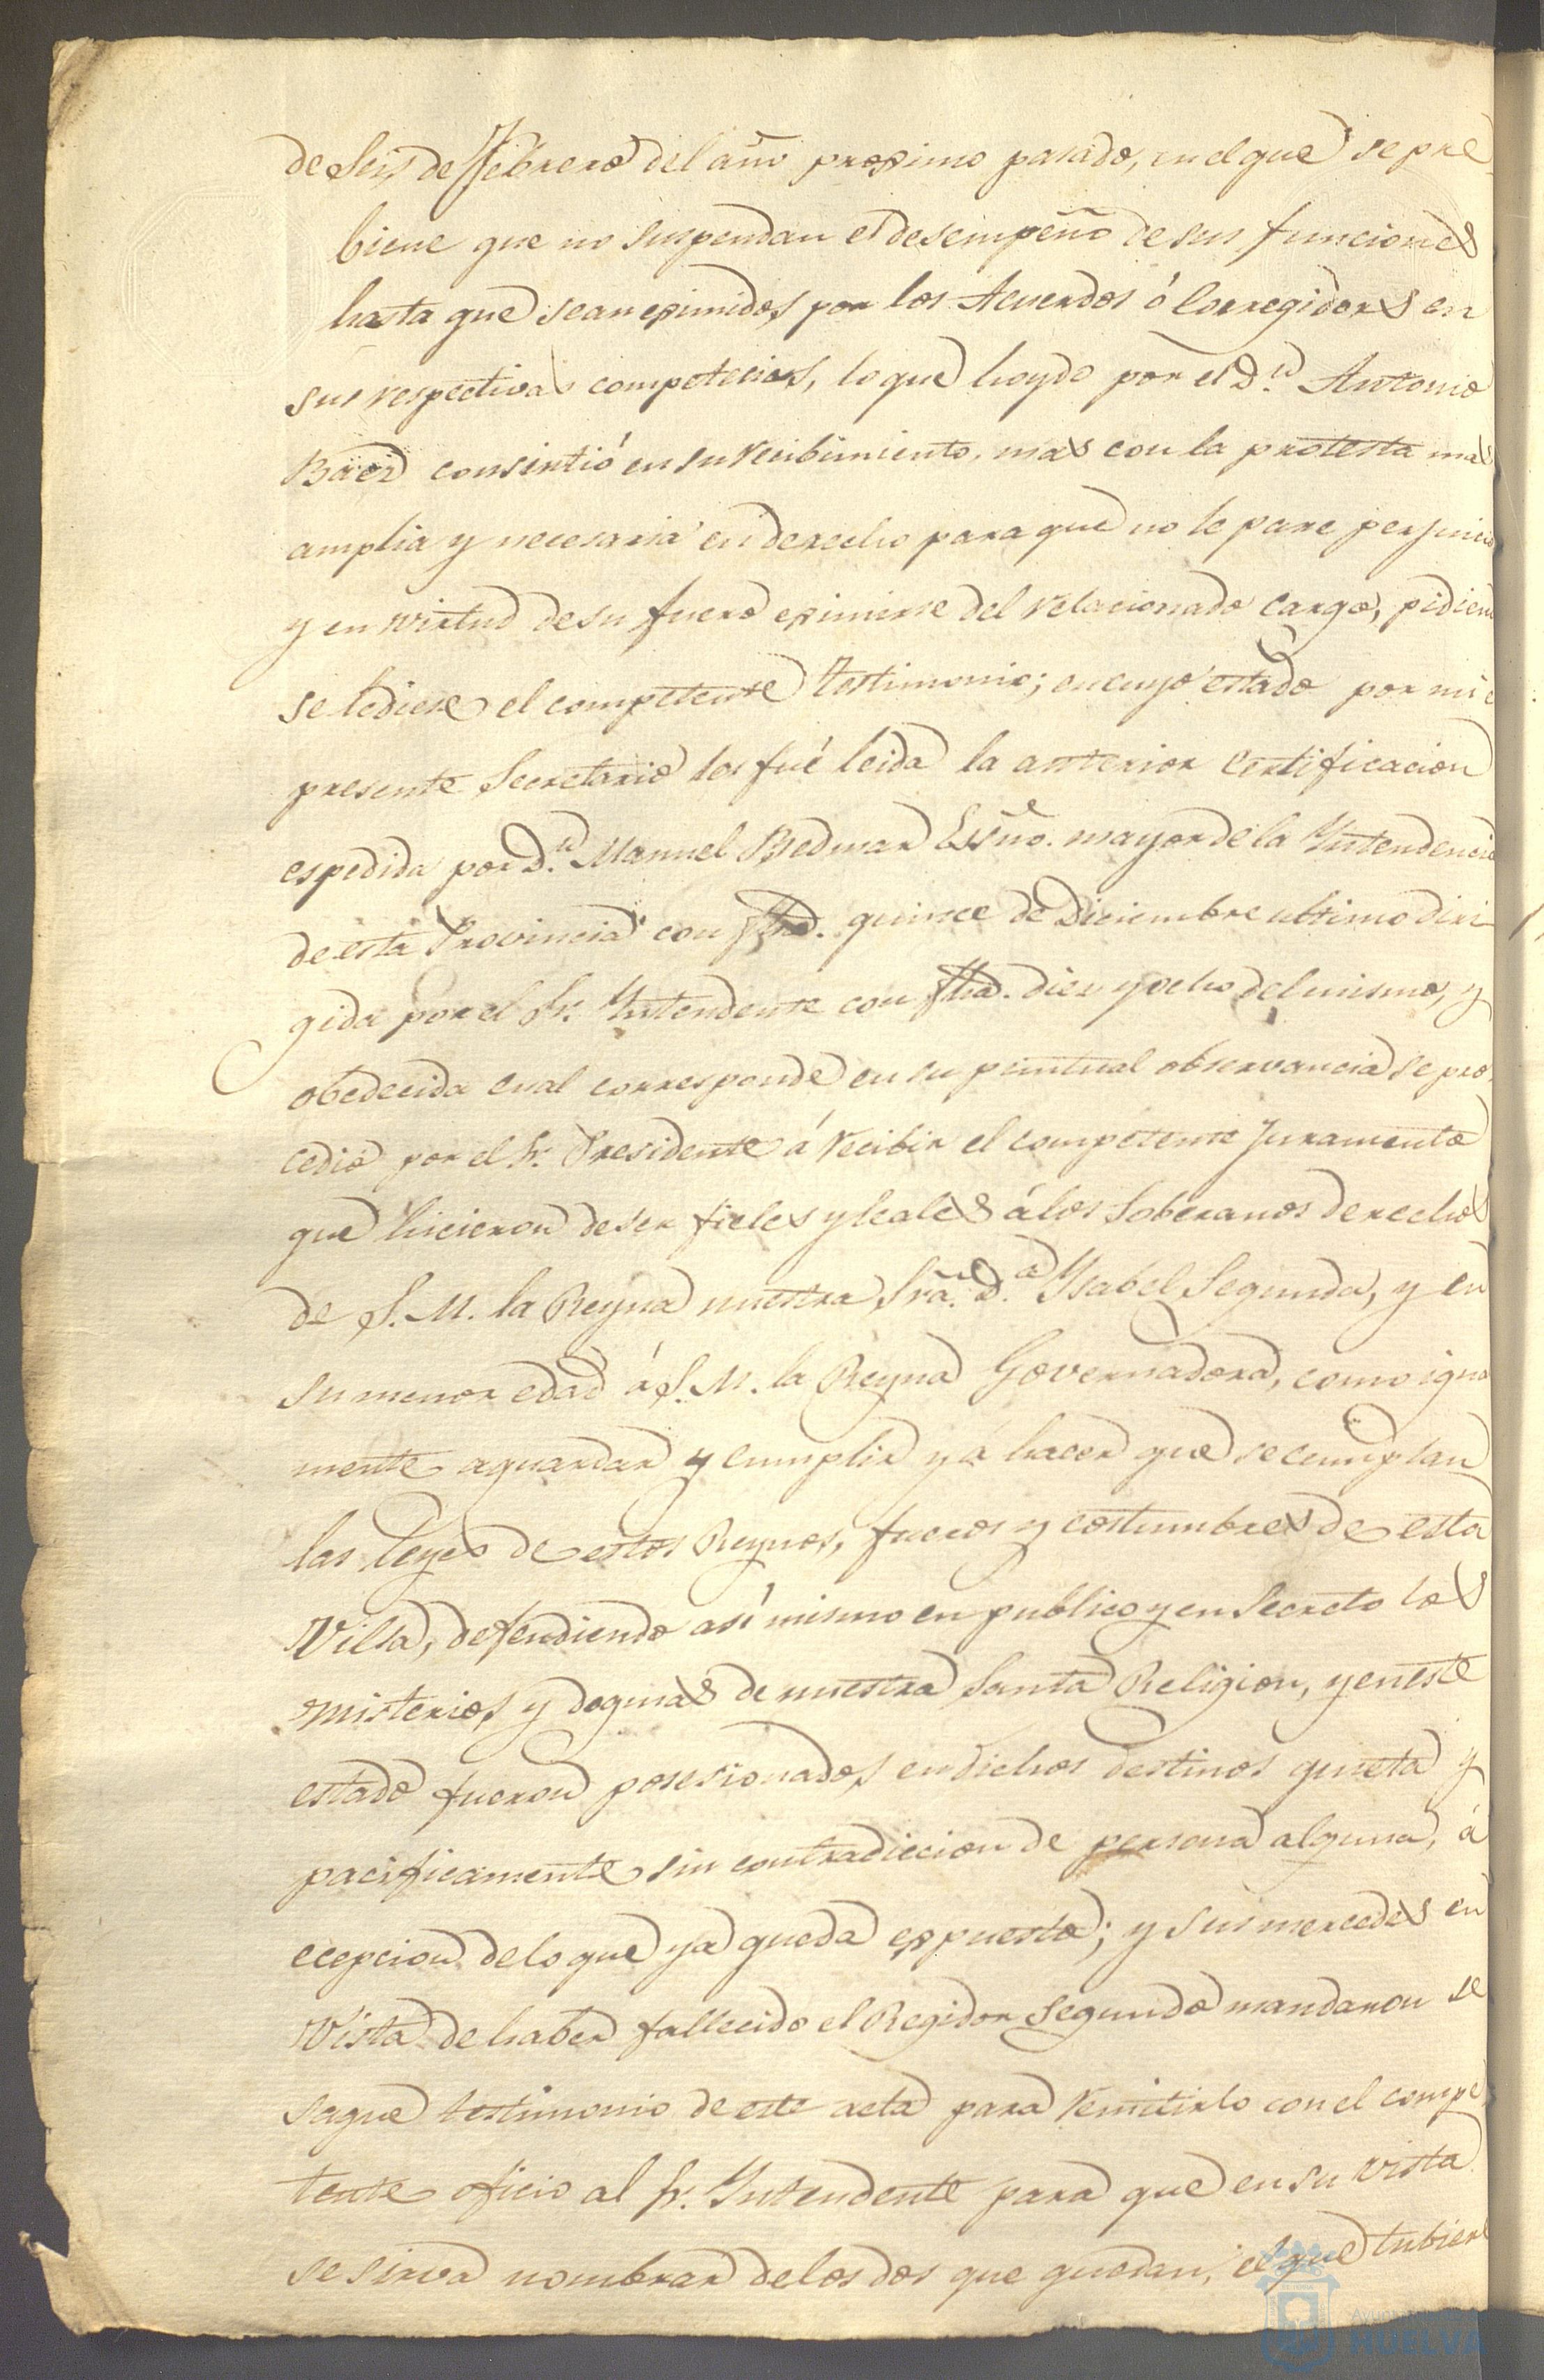 de Seis de Febrero del año proximo pasado, en el que se pre-
biene que no suspendan el desempeño de sus funciones
hasta que sean eximidos por los Acuerdos ó Corregidores en
sus respectivas competecias, lo que hoydo por el D.n Antonio
Baez consintió en su recibimiento, mas con la protesta mas
amplia y necesaria en derecho para que no le pare perjuicio
y en virtud de su fuero eximirse del relacionado cargo, pidiend
se le diese el competente testimonio; en cuyo estado por mi e
presente Secretario les fué leida la anterior Certificacion
espedida por D.n Manuel Bedmar Essño. mayor de la Yntendencia
de esta Provincia con fha. quince de Diciembre ultimo diri
gida por el Sr. Yntendente con fha. diez y ocho del mismo, y
obedecida cual corresponde en su puntual observancia se pro-
cedio por el Sr. Presidente á recibir el competente juramento
que hicieron de ser fieles y leales á los Soberanos derechos
de S. M. la Reyna nuestra Sra. D.a Ysabel Segunda, y en
su menor edad á S. M. la Reyna Governadora, como igual
mente aguardar y cumplir y á hacer que se cumplan
las leyes de estos Reynos, fueros y costumbres de esta
Villa, defendiendo así mismo en publico y en Secreto los
misterios y dogmas de nuestra Santa Religion, y en este
estado fueron posesionados en dichos destinos quieta y
pacificamente sin contradiccion de persona alguna, á
ecepcion de lo que ya queda expuesto; y sus mercedes en
Vista de haber fallecido el Regidor Segundo mandaron se
saque testimonio de este acta para remitirlo con el compe
tente oficio al Sr. Yntendente para que en su vista
se sirva nombrar de los dos que quedan, el que tubiere
HUELVA